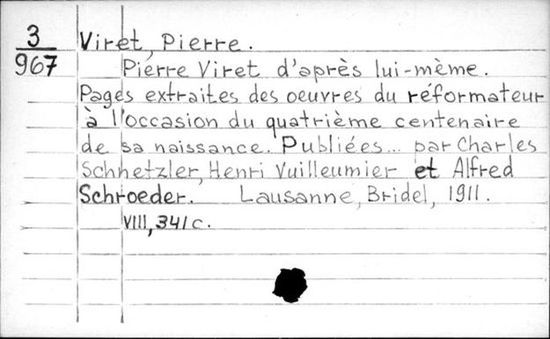 3 Viret, Pierre.
967 Pierre Viret d'après lui-mème.
Pages extraites des oeuvres du réformateur
à l'occasion du quatrième centenaire
de sa naissance. Publiées... par Charles
Schnetzler, Henri Vuilleumier et Alfred
Schroeder. Lausanne, Bridel, 1911.
VIII, 341 c.